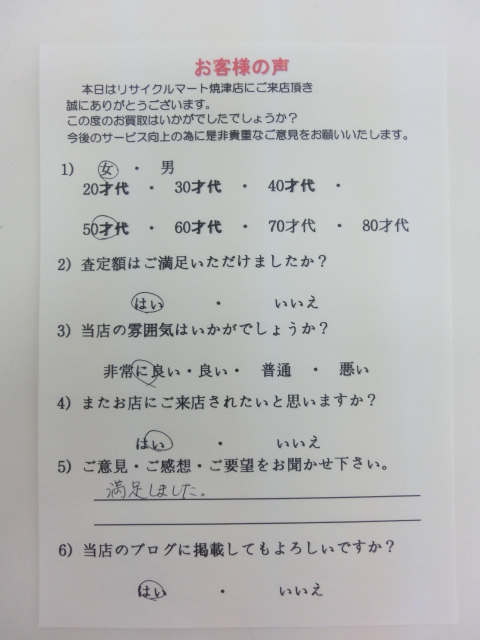 お客様の声
本日はリサイクルマート焼津店にご来店頂き
誠にありがとうございます。
この度のお買取はいかがでしたでしょうか？
今後のサービス向上の為に是非貴重なご意見をお願いいたします。
1) 女 ・ 男
20才代 ・ 30才代 ・ 40才代 ・
50才代 ・ 60才代 ・ 70才代 ・ 80才代
2) 査定額はご満足いただけましたか？
はい ・ いいえ
3) 当店の雰囲気はいかがでしょうか？
非常に良い・良い・ 普通 ・ 悪い
4) またお店にご来店されたいと思いますか？
はい ・ いいえ
5) ご意見・ご感想・ご要望をお聞かせ下さい。
満足しました。
6) 当店のブログに掲載してもよろしいですか？
はい ・ いいえ